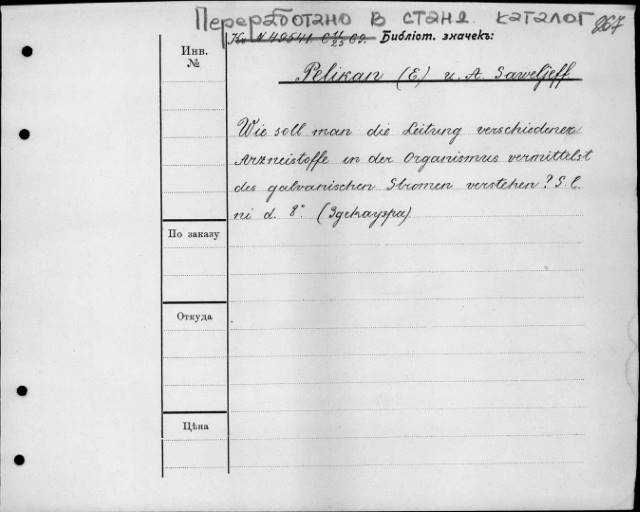 Переработано в станд. каталог 267
Кв № 49541 СЧ/25 69. Библіот. значекъ:
Инв.
№
Pelikan (E) u. A. Saweljeff
Wie soll man die Leitung verschiedener
Arzneistoffe in der Organismus vermittelst
des galvanischen Stromen verstehen? S. l.
ni d. 8°. (Здекауэра)
По заказу
Откуда
Цѣна